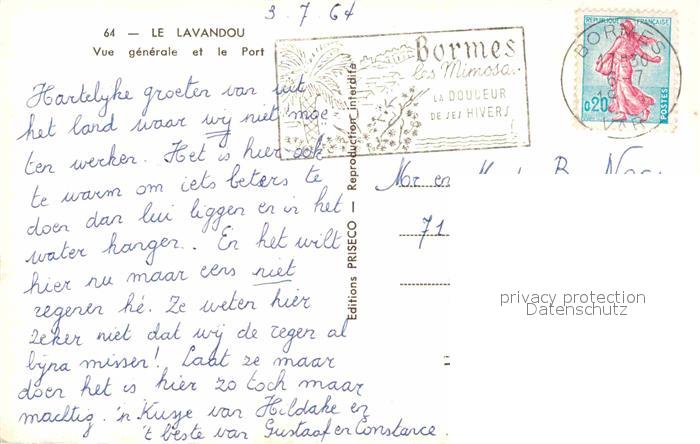 3.7.64
64 — LE LAVANDOU
Vue générale et le Port
Bormes
les Mimosas
LA DOUCEUR
DE SES HIVERS
REPUBLIQUE FRANÇAISE
0,20
POSTES
BORMES
VAR
Hartelyke groeten van uit
het land waar wij niet moe
ten werken. Het is hier ook
te warm om iets beters te
doen dan lui liggen en in het
water hangen.. En het wilt
hier nu maar eens niet
regenen hé. Ze weten hier
zeker niet dat wij de regen al
bijna missen! Laat ze maar
doen het is hier zo toch maar
machtig. 'n Kusje van Hildake en
't beste van Gustaaf en Constance.
Editions PRISECO — Reproduction interdite
Mr en
71
privacy protection
Datenschutz